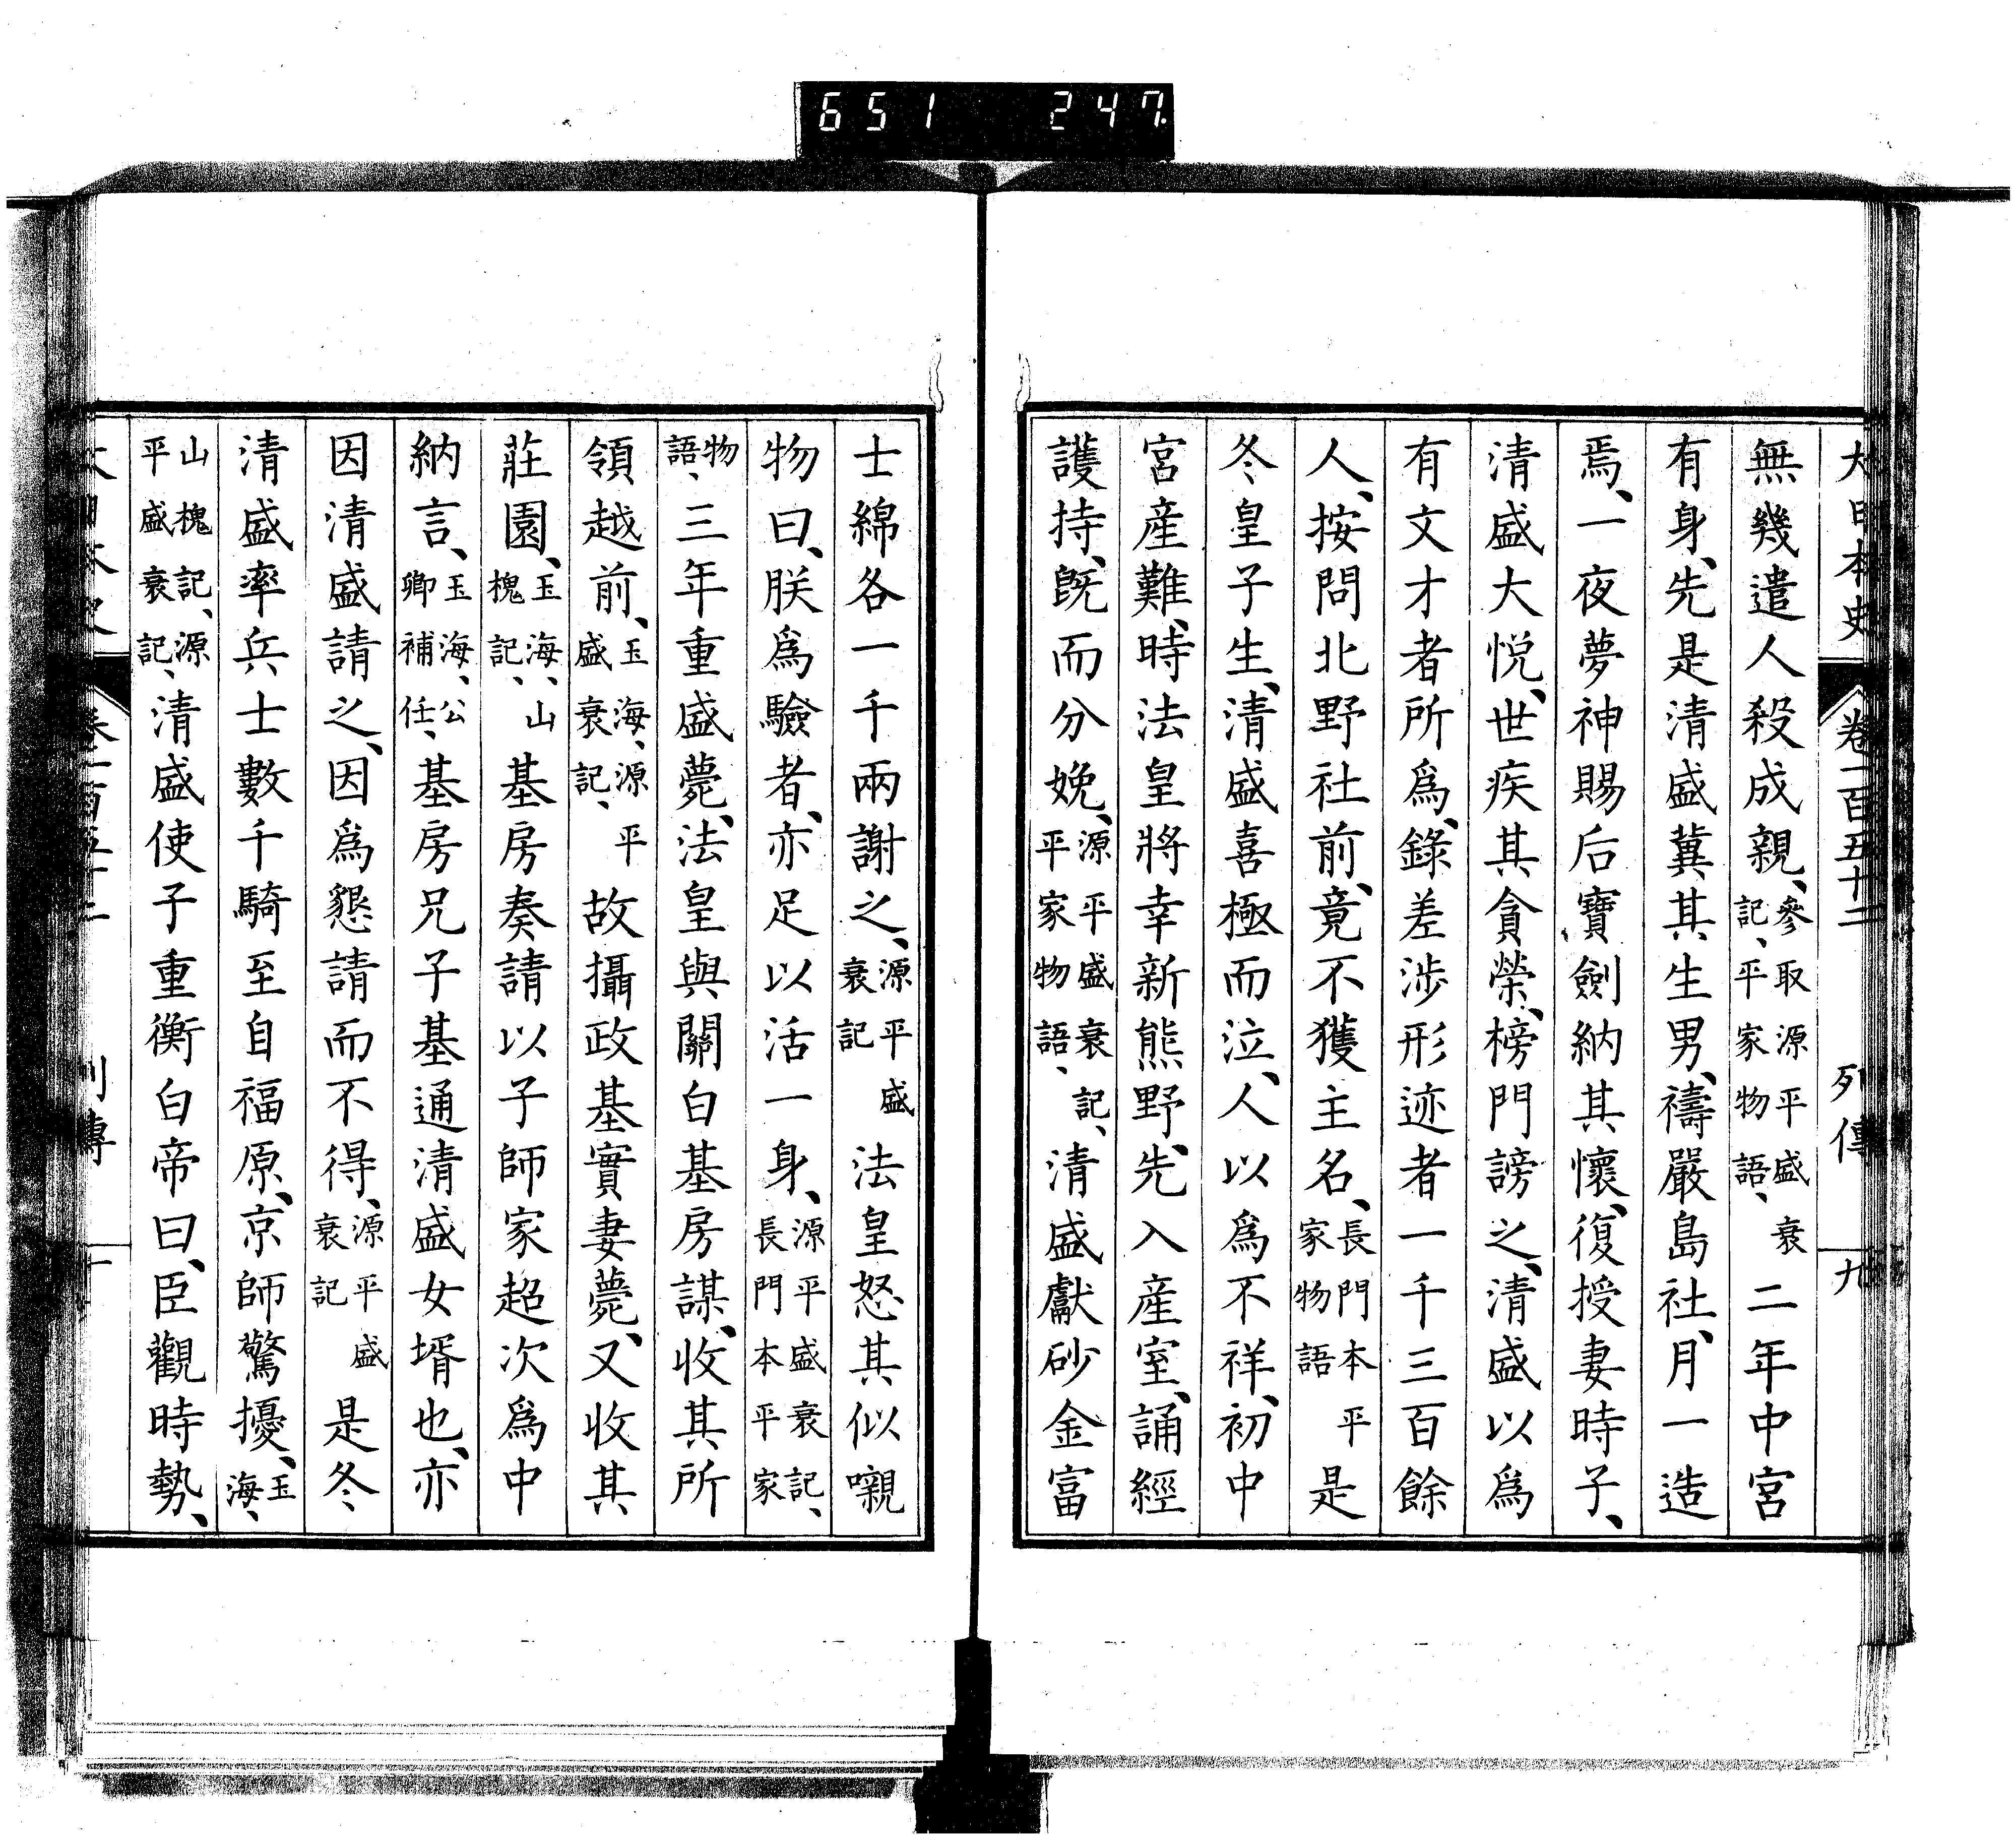 651 247
大日本史 卷一百五十二 列傳 九
無幾遣人殺成親、參取源平盛衰記、平家物語、二年中宮
有身、先是清盛冀其生男、禱嚴島社、月一造
焉、一夜夢神賜后寶劍納其懷、復授妻時子、
清盛大悦、世疾其貪榮、榜門謗之、清盛以爲
有文才者所爲、錄差涉形迹者一千三百餘
人、按問北野社前、竟不獲主名、長門本平家物語是
冬、皇子生、清盛喜極而泣、人以爲不祥、初中
宮産難、時法皇將幸新熊野、先入産室、誦經
護持、既而分娩、源平盛衰記、平家物語、清盛獻砂金富
士綿各一千兩謝之、源平盛衰記法皇怒其似嚫
物曰、朕爲驗者、亦足以活一身、源平盛衰記、長門本平家
物語、三年重盛薨、法皇與關白基房謀、收其所
領越前、玉海、源平盛衰記、故攝政基實妻薨、又收其
莊園、玉海、山槐記、基房奏請以子師家超次爲中
納言、玉海、公卿補任、基房兄子基通清盛女壻也、亦
因清盛請之、因爲懇請而不得、源平盛衰記是冬、
清盛率兵士數千騎至自福原、京師驚擾、玉海、
山槐記、源平盛衰記、清盛使子重衡白帝曰、臣觀時勢、